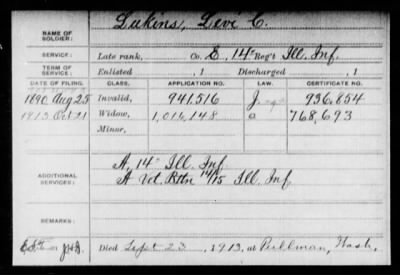 NAME OF SOLDIER: Lukins, Levi C.
SERVICE: Late rank, Co. E, 14" Reg't Ill. Inf.
TERM OF SERVICE: Enlisted , 1 Discharged , 1
DATE OF FILING. CLASS. APPLICATION NO. LAW. CERTIFICATE NO.
1890 Aug 25 Invalid, 941,516 J 936,854
1913 Oct 21 Widow, 1,016,148 a 768,693
Minor,
ADDITIONAL SERVICES: A, 14" Ill. Inf.
A Vet. Bttn 14/15 Ill. Inf.
REMARKS:
Died Sept 23, 1913, at Pullman, Wash.